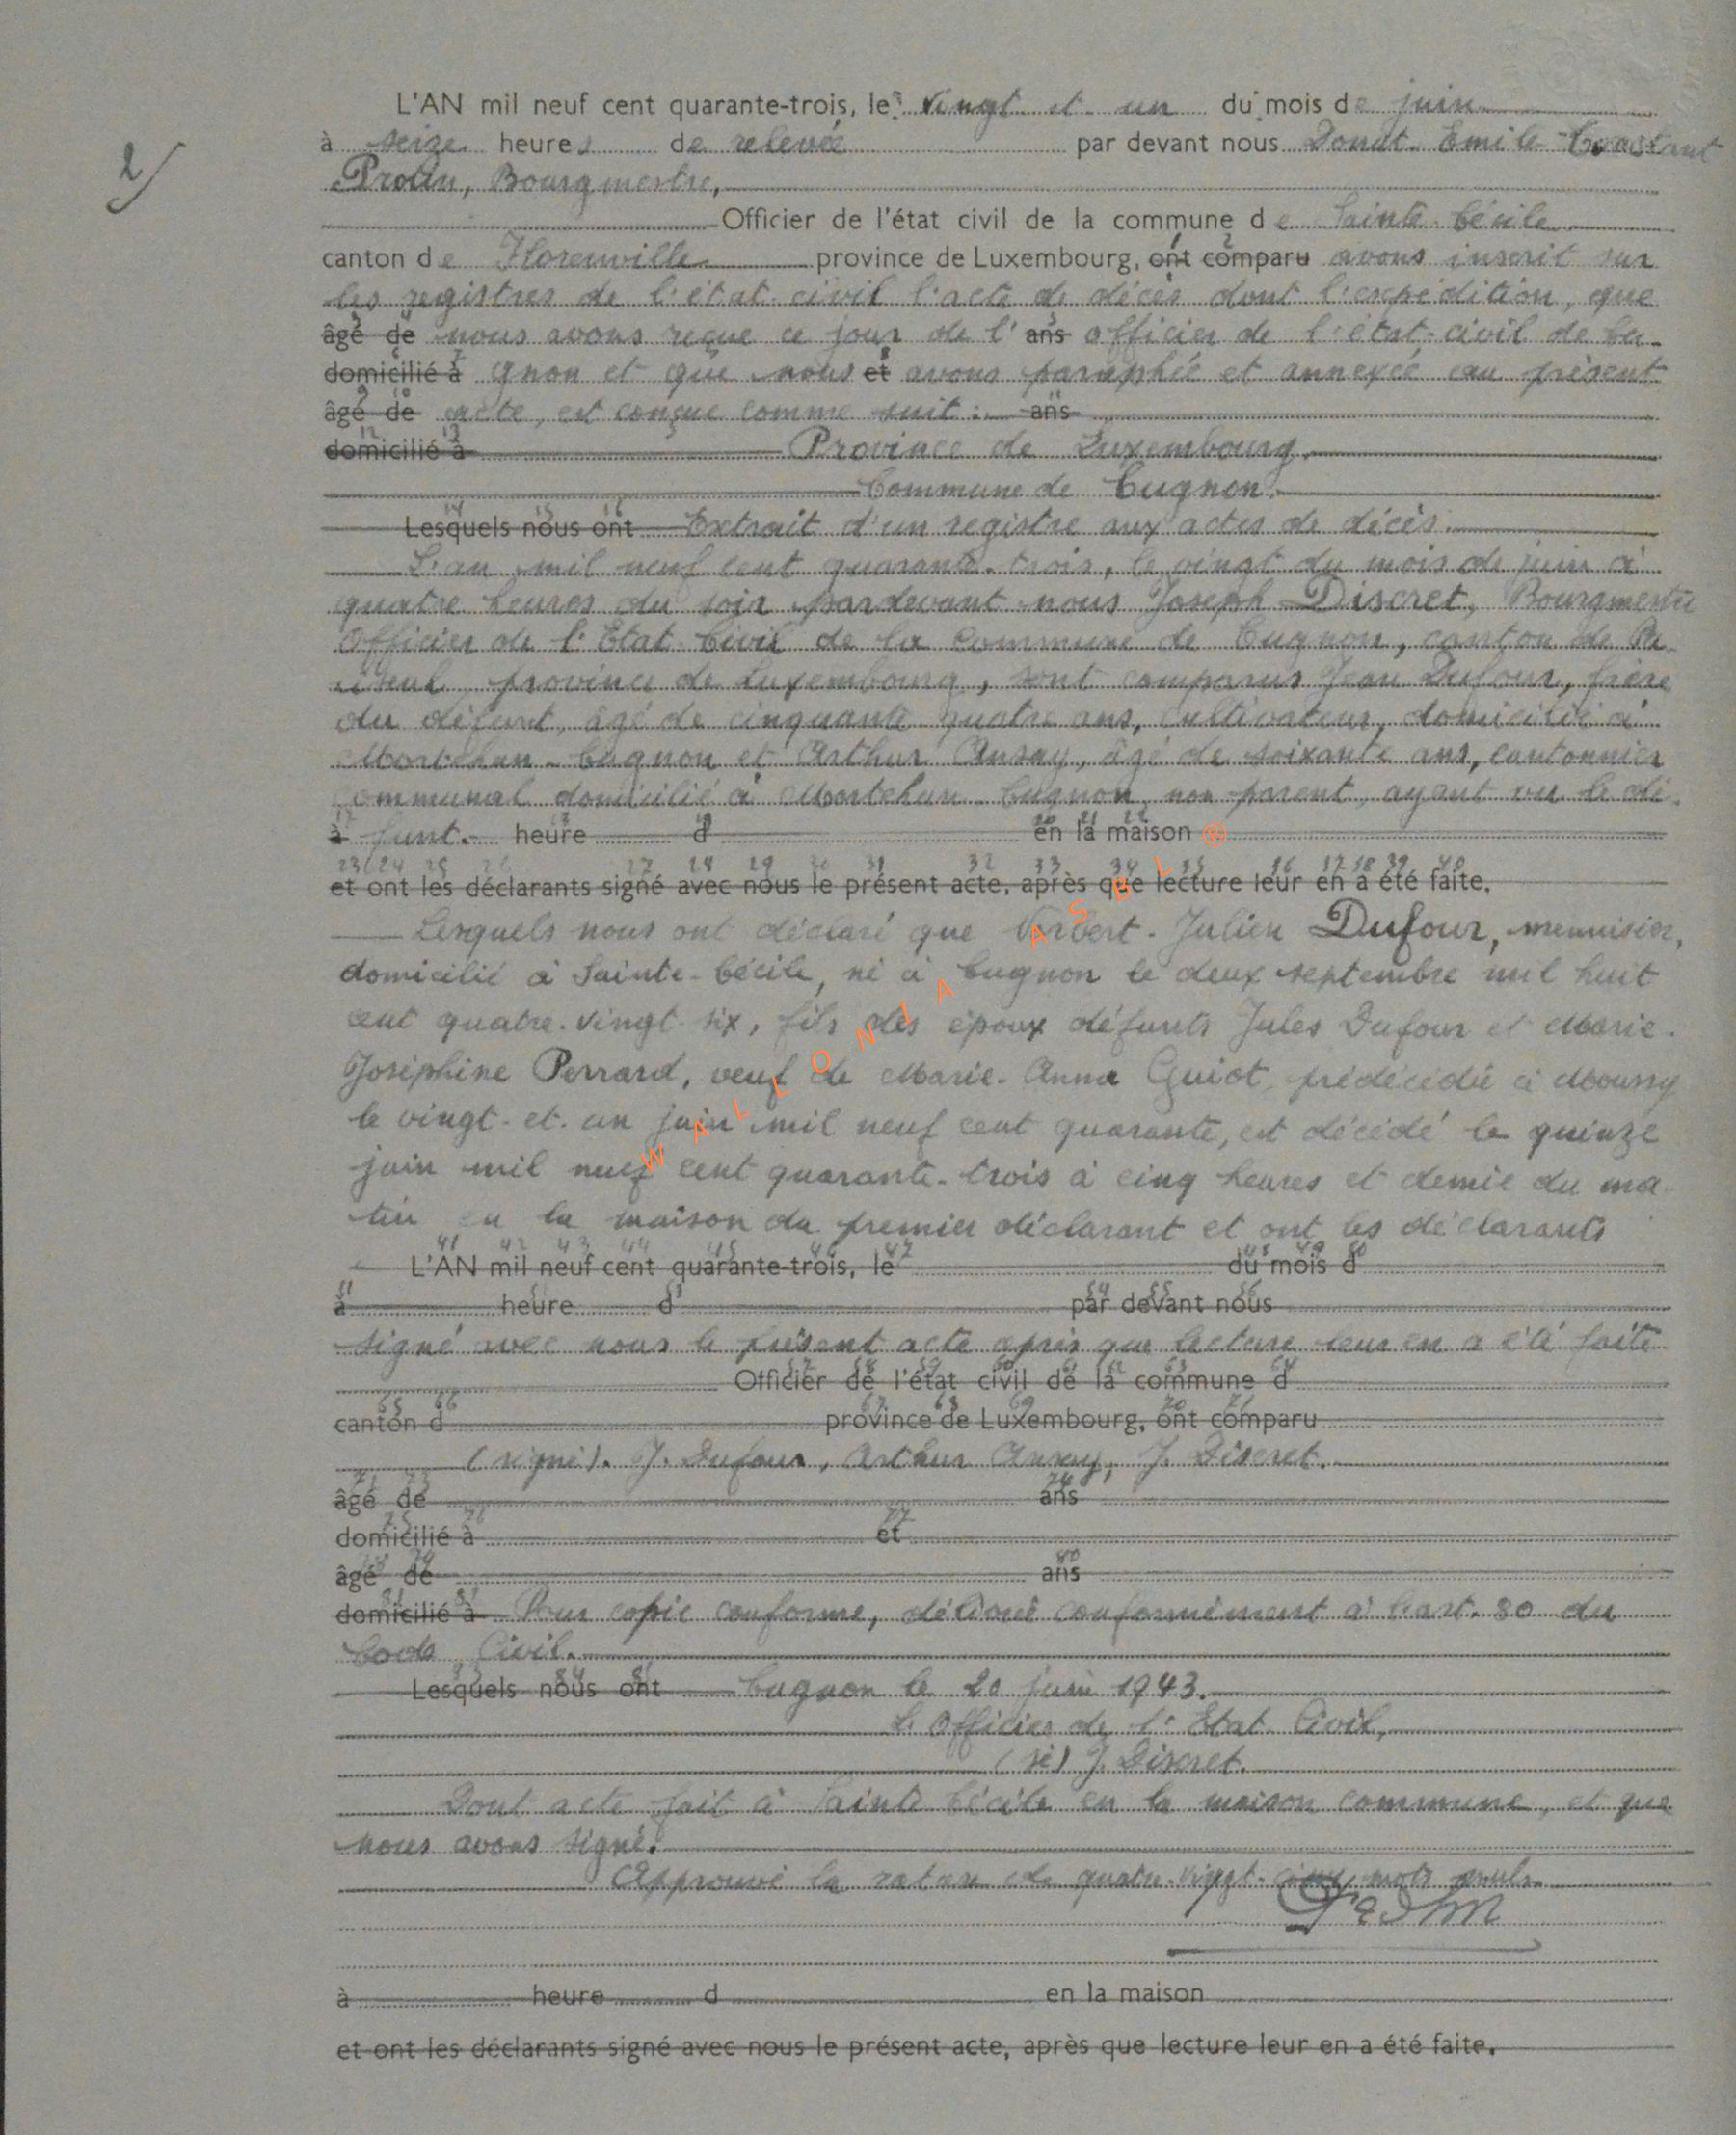 2/
L'AN mil neuf cent quarante-trois, le vingt et un du mois de juin
à seize heures de relevée par devant nous Donat Emile Constant
Prolin, Bourgmestre,
Officier de l'état civil de la commune de Sainte-Cécile
canton de Florenville province de Luxembourg, ont comparu avons inscrit sur
les registres de l'état-civil l'acte de décès dont l'expédition, que
âgé de nous avons reçue ce jour de l' ans officier de l'état-civil de Cu-
domicilié à gnon et que nous et avons paraphée et annexée au présent
âgé de acte, est conçue comme suit : ans
domicilié à Province de Luxembourg.
Commune de Cugnon.
Lesquels nous ont Extrait d'un registre aux actes de décès.
L'an mil neuf cent quarante-trois, le vingt du mois de juin à
quatre heures du soir pardevant nous Joseph Discret, Bourgmestre
Officier de l'Etat-Civil de la Commune de Cugnon, canton de Pa-
liseul, province de Luxembourg, sont comparus Jean Dufour, frère
du défunt, âgé de cinquante quatre ans, cultivateur, domicilié à
Mortehan-Cugnon et Arthur Ansay, âgé de soixante ans, cantonnier
communal domicilié à Mortehan-Cugnon, non parent, ayant vu le dé-
à funt.- heure d en la maison ®
et ont les déclarants signé avec nous le présent acte, après que lecture leur en a été faite.
Lesquels nous ont déclaré que Julien Dufour, menuisier,
domicilié à Sainte-Cécile, né à Cugnon le deux septembre mil huit
cent quatre-vingt-six, fils des époux défunts Jules Dufour et Marie-
Joséphine Perrard, veuf de Marie-Anna Guiot, prédécédée à Moussy
le vingt-et-un juin mil neuf cent quarante, est décédé le quinze
juin mil neuf cent quarante-trois à cinq heures et demie du ma-
tin en la maison du premier déclarant et ont les déclarants
L'AN mil neuf cent quarante-trois, le du mois d
à heure d par devant nous
signé avec nous le présent acte après que lecture leur en a été faite
Officier de l'état civil de la commune d
canton d province de Luxembourg, ont comparu
(signé). J. Dufour, Arthur Ansay, J. Discret.
âgé de ans
domicilié à et
âgé de ans
domicilié à Pour copie conforme, délivrée conformément à l'art. 80 du
Code Civil.
Lesquels nous ont Cugnon le 20 juin 1943.
L'Officier de l'Etat Civil,
(sé) J. Discret.
Dont acte fait à Sainte Cécile en la maison commune, et que
nous avons signé.
Approuvé la rature de quatre-vingt-cinq mots nuls.
à heure d en la maison
et ont les déclarants signé avec nous le présent acte, après que lecture leur en a été faite.
WALLONIA ASBL